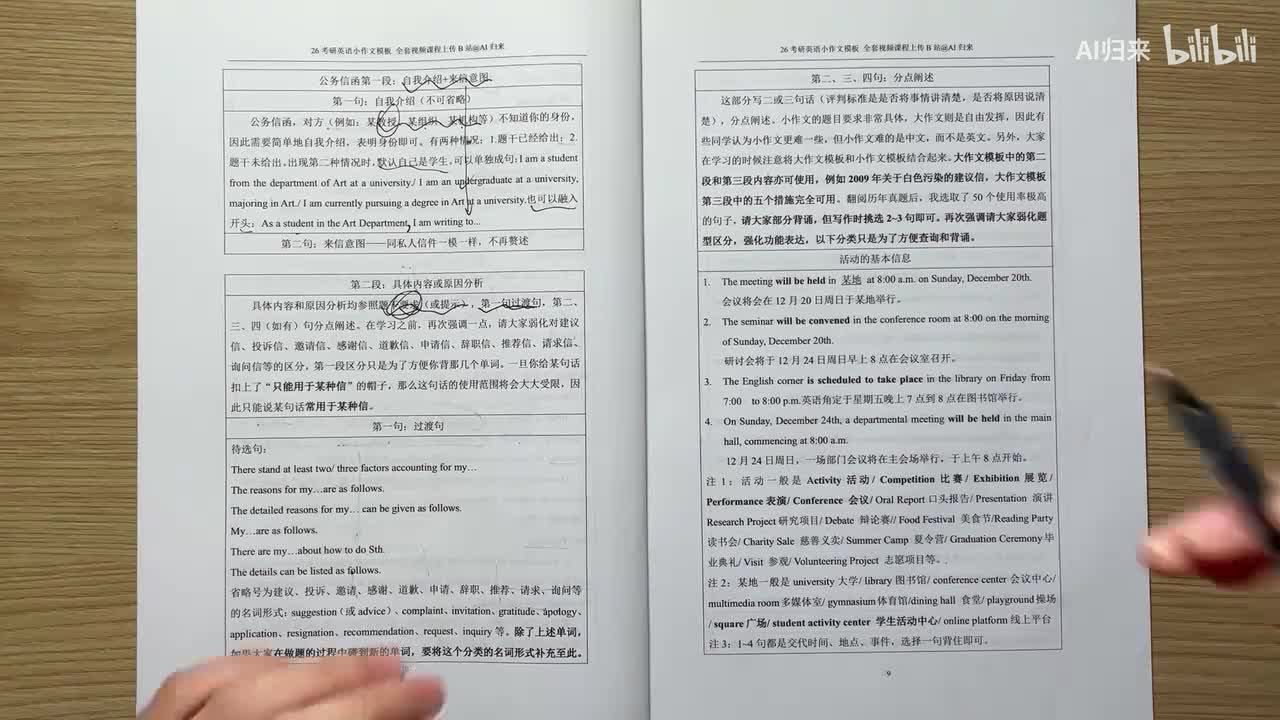 26 考研英语小作文模板 全套视频课程上传 B 站@AI 归来
公务信函第一段：自我介绍+来信意图
第一句：自我介绍（不可省略）
公务信函，对方（例如：某教授、某组织、某机构等）不知道你的身份，
因此需要简单地自我介绍，表明身份即可。有两种情况：1.题干已经给出；2.
题干未给出。出现第二种情况时，默认自己是学生，可以单独成句：I am a student
from the department of Art at a university./ I am an undergraduate at a university,
majoring in Art./ I am currently pursuing a degree in Art at a university.也可以融入
开头：As a student in the Art Department, I am writing to...
第二句：来信意图——同私人信件一模一样，不再赘述
第二段：具体内容或原因分析
具体内容和原因分析均参照题干要求（或提示），第一句过渡句，第二、
三、四（如有）句分点阐述。在学习之前，再次强调一点，请大家弱化对建议
信、投诉信、邀请信、感谢信、道歉信、申请信、辞职信、推荐信、请求信、
询问信等的区分，第一段区分只是为了方便你背那几个单词。一旦你给某句话
扣上了“只能用于某种信”的帽子，那么这句话的使用范围将会大大受限，因
此只能说某句话常用于某种信。
第一句：过渡句
待选句：
There stand at least two/ three factors accounting for my…
The reasons for my…are as follows.
The detailed reasons for my… can be given as follows.
My…are as follows.
There are my…about how to do Sth.
The details can be listed as follows.
省略号为建议、投诉、邀请、感谢、道歉、申请、辞职、推荐、请求、询问等
的名词形式：suggestion（或 advice）、complaint、invitation、gratitude、apology、
application、resignation、recommendation、request、inquiry 等。除了上述单词，
如果大家在做题的过程中碰到新的单词，要将这个分类的名词形式补充至此。
26 考研英语小作文模板 全套视频课程上传 B 站@AI 归来
第二、三、四句：分点阐述
这部分写二或三句话（评判标准是是否将事情讲清楚，是否将原因说清
楚），分点阐述。小作文的题目要求非常具体，大作文则是自由发挥，因此有
些同学认为小作文更难一些，但小作文难的是中文，而不是英文。另外，大家
在学习的时候注意将大作文模板和小作文模板结合起来。大作文模板中的第二
段和第三段内容亦可使用，例如 2009 年关于白色污染的建议信，大作文模板
第三段中的五个措施完全可用。翻阅历年真题后，我选取了 50 个使用率极高
的句子，请大家部分背诵，但写作时挑选 2~3 句即可。再次强调请大家弱化题
型区分，强化功能表达，以下分类只是为了方便查询和背诵。
活动的基本信息
1. The meeting will be held in 某地 at 8:00 a.m. on Sunday, December 20th.
会议将会在 12 月 20 日周日于某地举行。
2. The seminar will be convened in the conference room at 8:00 on the morning
of Sunday, December 20th.
研讨会将于 12 月 24 日周日早上 8 点在会议室召开。
3. The English corner is scheduled to take place in the library on Friday from
7:00 to 8:00 p.m.英语角定于星期五晚上 7 点到 8 点在图书馆举行。
4. On Sunday, December 24th, a departmental meeting will be held in the main
hall, commencing at 8:00 a.m.
12 月 24 日周日，一场部门会议将在主会场举行，于上午 8 点开始。
注 1：活动一般是 Activity 活动/ Competition 比赛/ Exhibition 展览/
Performance 表演/ Conference 会议/ Oral Report 口头报告/ Presentation 演讲
Research Project 研究项目/ Debate 辩论赛// Food Festival 美食节/Reading Party
读书会/ Charity Sale 慈善义卖/ Summer Camp 夏令营/ Graduation Ceremony 毕
业典礼/ Visit 参观/ Volunteering Project 志愿项目等。
注 2：某地一般是 university 大学/ library 图书馆/ conference center 会议中心/
multimedia room 多媒体室/ gymnasium 体育馆/dining hall 食堂/ playground 操场
/ square 广场/ student activity center 学生活动中心/ online platform 线上平台
注 3：1~4 句都是交代时间、地点、事件，选择一句背住即可。
9
AI归来 bilibili